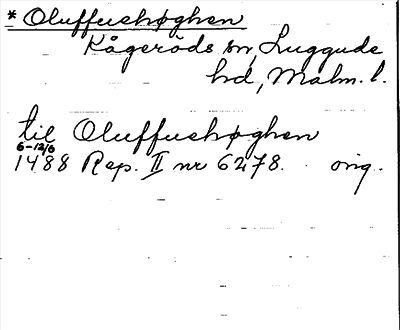 * Oluffushøghen
Kågeröds sn, Luggude
hd, Malm. l.
til Oluffushøghen
6-12/6
1488 Rep. II nr 6278. orig.